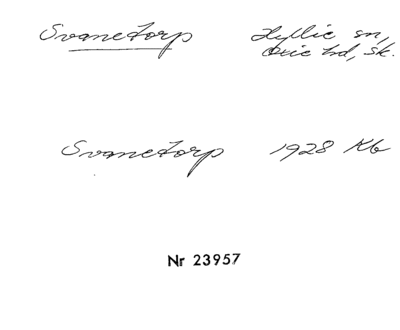 Svanetorp Hyllie sn,
Oxie hd, Sk.
Svanetorp 1928 Kb
Nr 23957